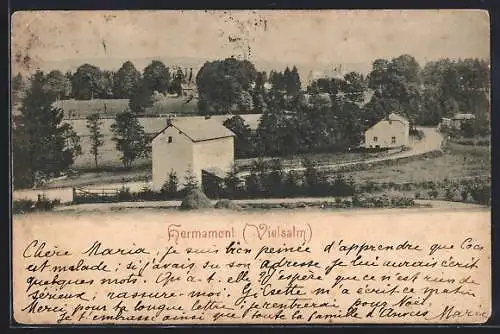 Hermamont (Vielsalm)
Chère Maria, je suis bien peinée d'apprendre que Coco
est malade; si j'avais su son adresse je lui aurais écrit
quelques mots. Qu'a-t-elle? J'espère que ce n'est rien de
sérieux; rassure-moi. Gisette m'a écrit ce matin
Merci pour ta longue lettre. rentrerai pour Noël.
Je t'embrasse ainsi que toute la famille d'Ances Marie